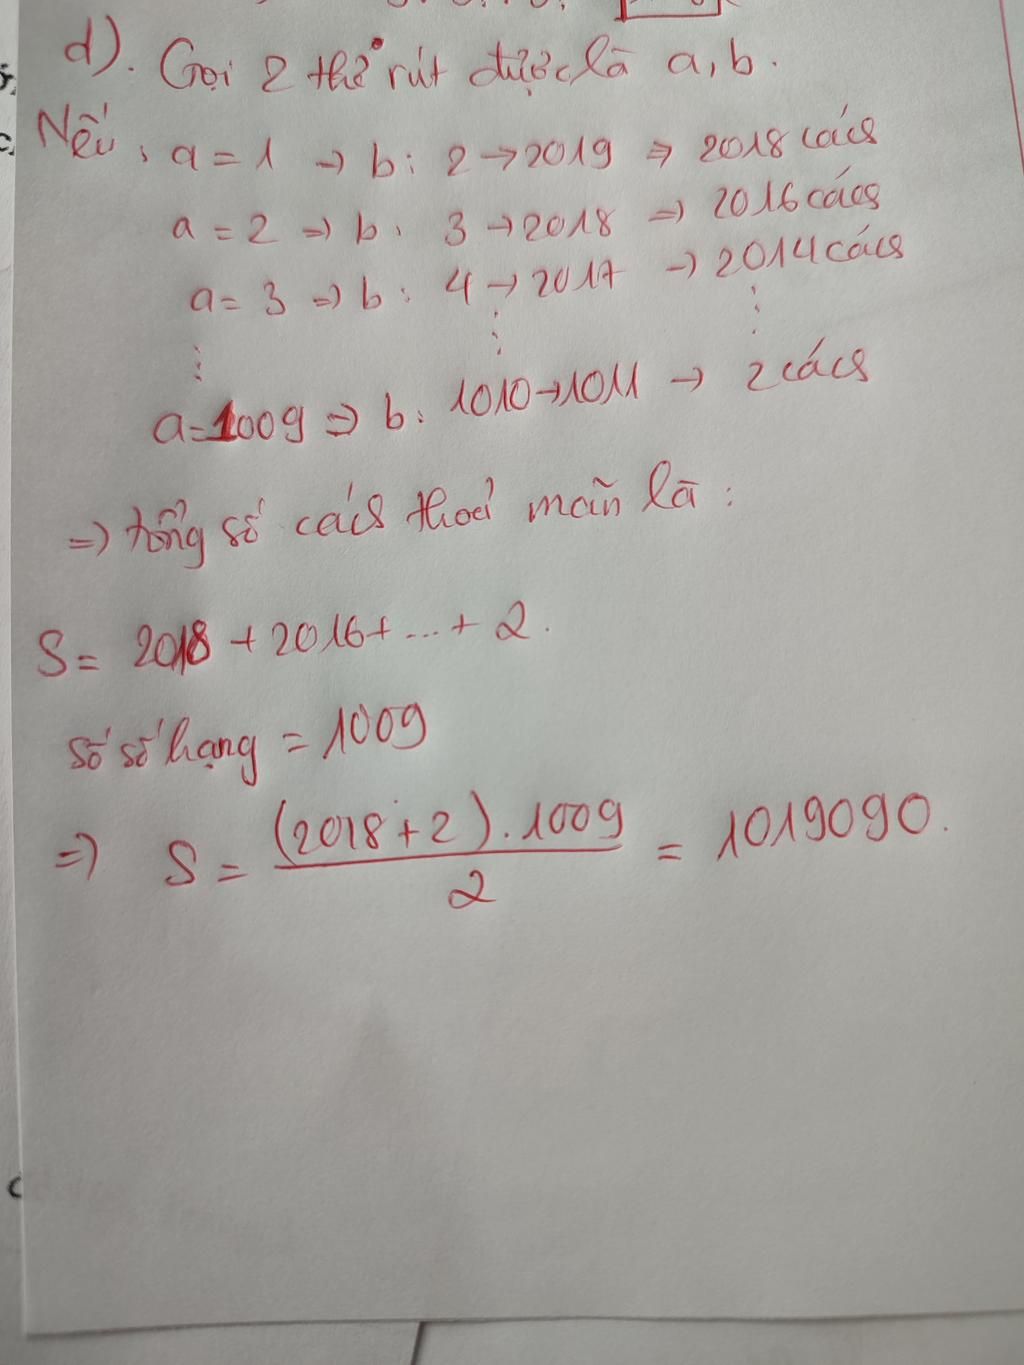 d). Gọi 2 thẻ rút được là a, b.
Nếu, a = 1 → b: 2 → 2019 ⇒ 2018 cách
a = 2 ⇒ b: 3 → 2018 ⇒ 2016 cách
a = 3 ⇒ b: 4 → 2017 → 2014 cách
⋮ ⋮ ⋮
a = 1009 ⇒ b: 1010 → 1011 → 2 cách
⇒ tổng số cách thoả mãn là:
S = 2018 + 2016 + ... + 2.
số số hạng = 1009
⇒ S = (2018 + 2) . 1009 / 2 = 1019090.